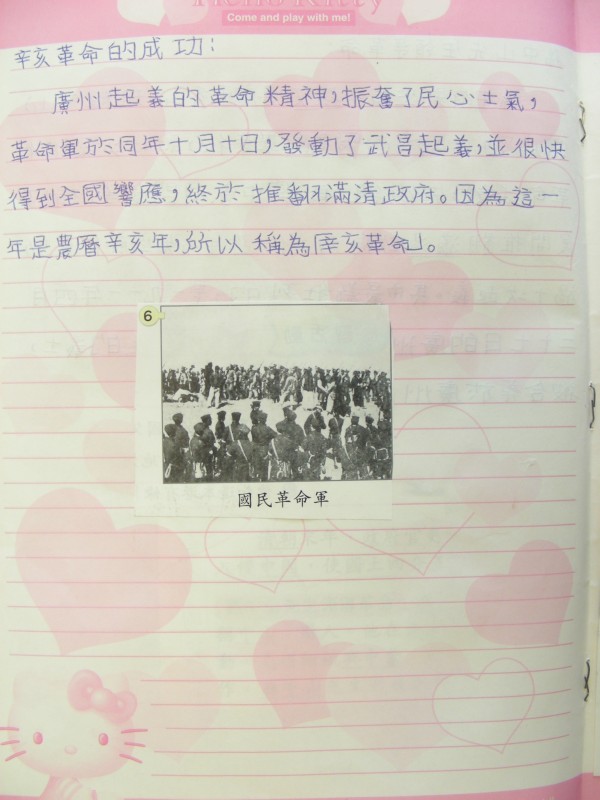 Hello Kitty
Come and play with me!
辛亥革命的成功：
廣州起義的革命精神，振奮了民心士氣，
革命軍於同年十月十日，發動了武昌起義，並很快
得到全國響應，終於推翻滿清政府。因為這一
年是農曆辛亥年，所以稱為「辛亥革命」。
6
國民革命軍